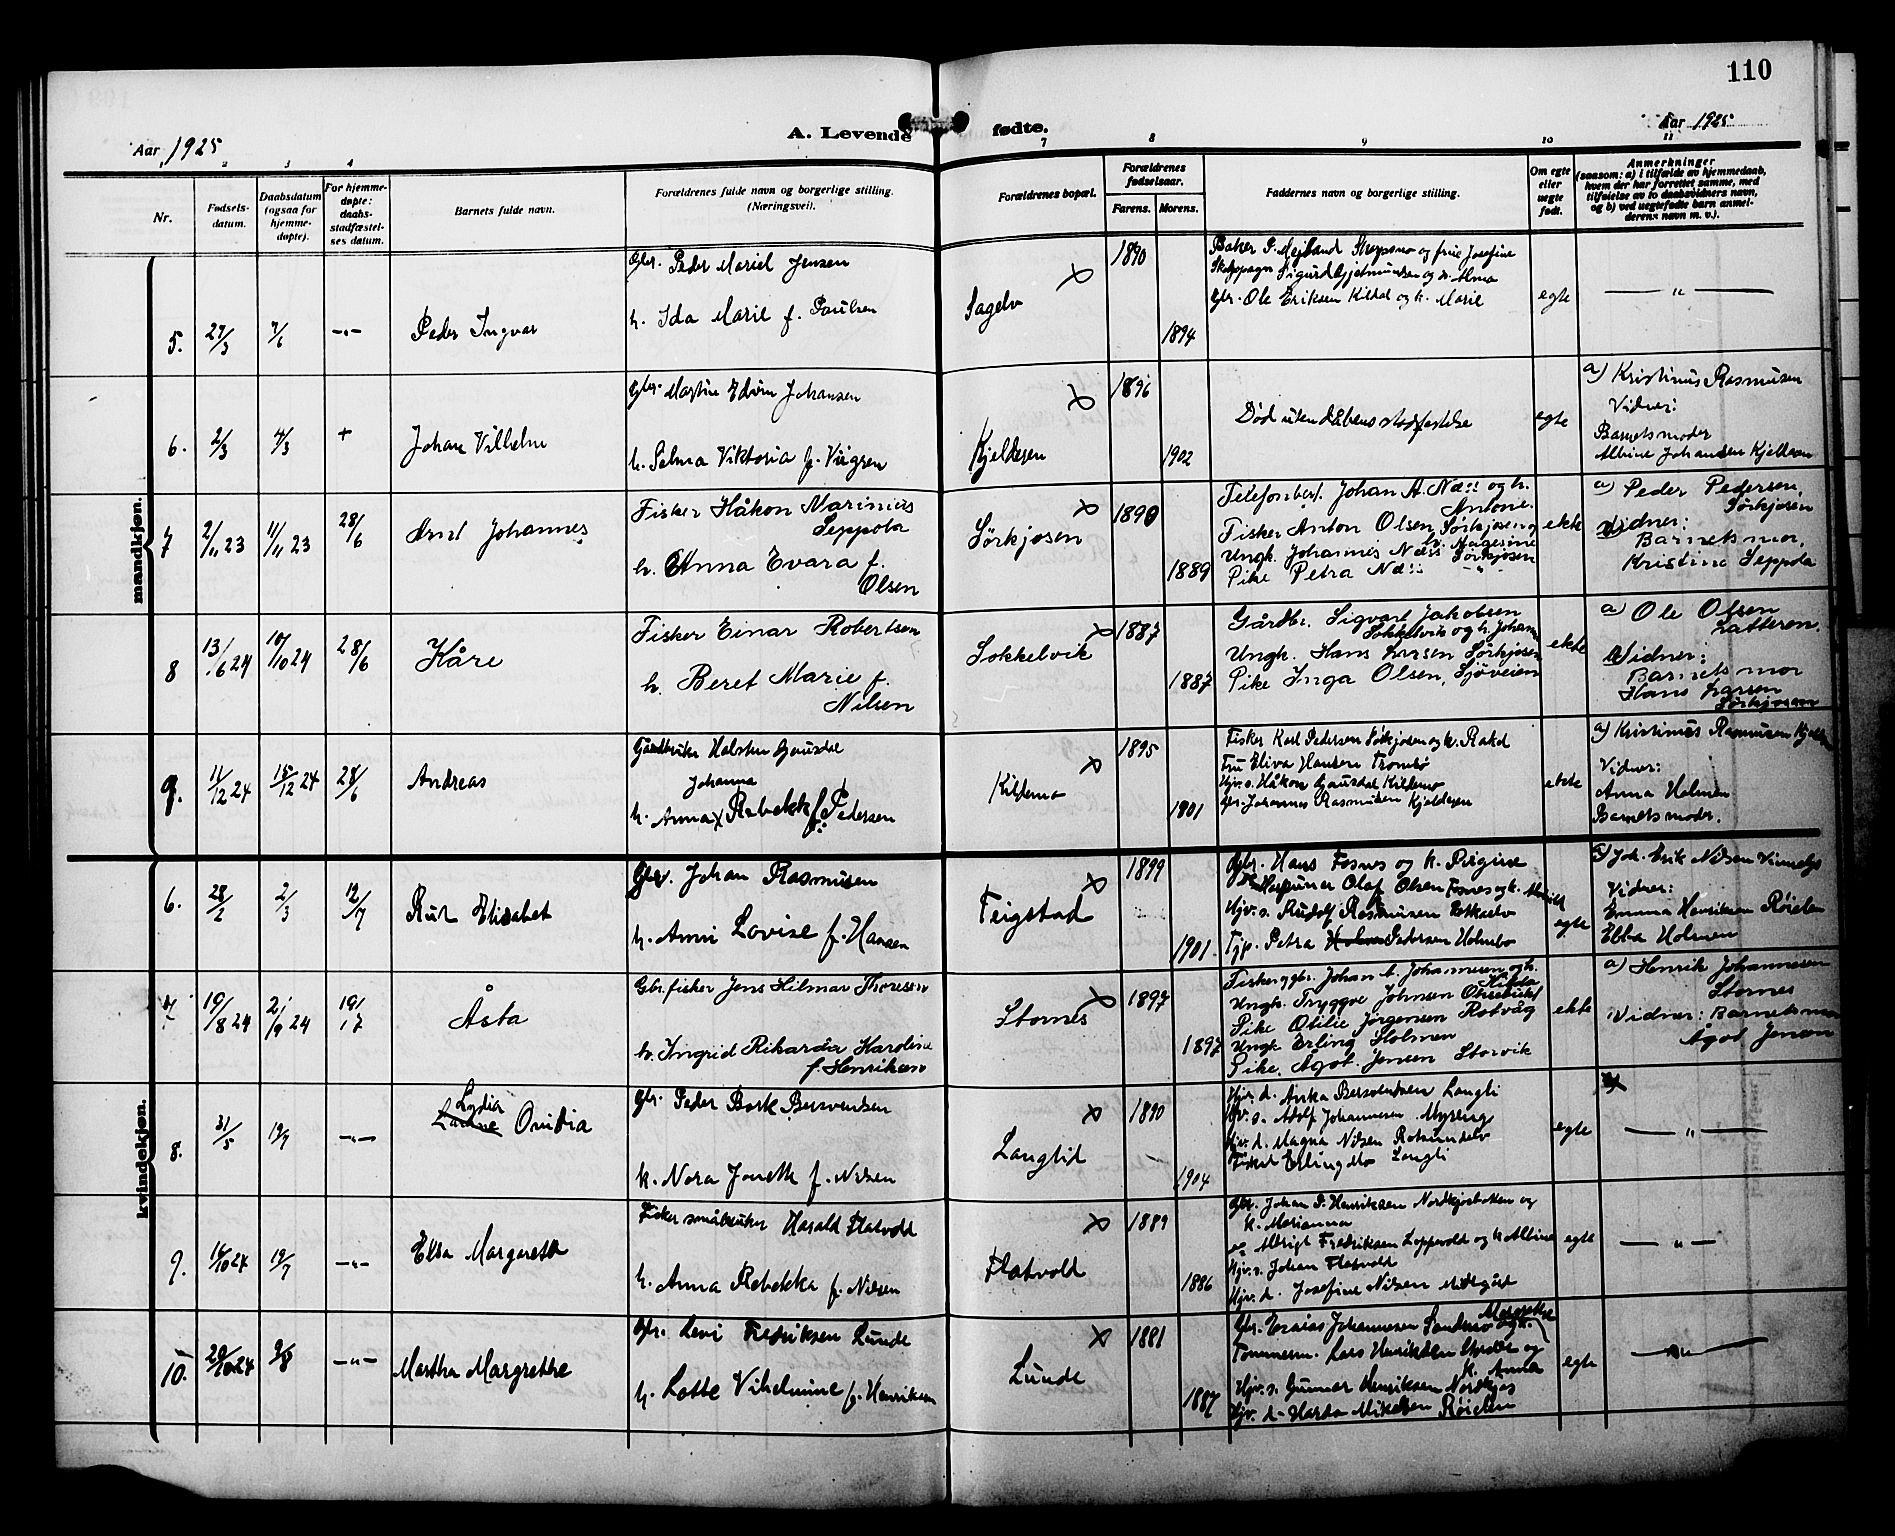 110
Aar 1925
A. Levende fødte.
Aar 1925
2 3 4 7 8 9 10 11
Nr.
Fødsels-
datum.
Daabsdatum
(ogsaa for
hjemme-
døpte).
For hjemme-
døpte:
daabs-
stadfæstel-
ses datum.
Barnets fulde navn.
Forældrenes fulde navn og borgerlige stilling.
(Næringsvei).
Forældrenes bopæl.
Forældrenes
fødselsaar.
Farens. Morens.
Faddernes navn og borgerlige stilling.
Om egte
eller
uegte
født.
Anmerkninger
(saasom: a) i tilfælde av hjemmedaab,
hvem der har forrettet samme, med
tilføielse av to daabsvidners navn,
og b) ved uegtefødte barn anmel-
derens navn m. v.).
mandkjøn.
5. 27/3 7/6 -"- Peder Ingvar
Gbr. Peder Mariel Jensen
h. Ida Marie f. Paulsen
Sagelv
1890
1894
Gbr. Ole Eriksen Kildal og h. Marie
egte
— " —
6. 2/3 4/3 + Johan Vilhelm
Gbr. Martin Edvin Johansen
h. Selma Viktoria f. Vigren
Kjeldesen
1896
1902
Død uten dåbens stadfestelse
egte
a) Kristinus Rasmusen
Vidner:
Barnets moder
Albine Johansen Kjellesen
7 2/11 23 11/11 23 28/6 Arnt Johannes
Fisker Håkon Marinius
Seppola
h. Anna Evara f.
Olsen
Sørkjosen
1890
1889
Telefonbest. Johan A. Næss og h.
Antonie.
Fisker Anton Olsen, Sørkjosen og
h. Hagesine
Ungk. Johannes Næss Sørkjosen
Pike Petra Næss -"-
ekte
a) Peder Pedersen,
Sørkjosen
Vidner:
Barnets mor,
Kristine Seppola
8 13/6 24 10/10 24 28/6 Kåre
Fisker Einar Robertsen
h. Beret Marie f.
Nilsen
Sokkelvik
1887
1887
Gårdbr. Sigvart Jakobsen
Sokkelvik og h. Johanna
Ungk. Hans Larsen Sørkjosen
Pike Inga Olsen, Sjøveien
ekte
a) Ole Olsen
Latteren.
Vidner:
Barnets mor
Hans Larsen
Sørkjosen
9. 11/12 24 15/12 24 28/6 Andreas
Gårdbruker Halsten Gausdal
Johanna
h. Anna Rebekka f. Pedersen
Kildemo
1895
1901
Fisker Karl Pedersen Sørkjosen og h. Rakel
Fru Eliva Hansen Tromsø
Hjv. s. Håkon Gausdal Kildemo
Gbr. Johannes Rasmusen Kjeldesen
ekte
a) Kristinus Rasmusen
Vidner:
Anna Holmen
Barnets moder.
kvindekjøn.
6. 28/2 2/3 12/7 Rut Elisabet
Gbr. Johan Rasmusen
h. Anni Lovise f. Hansen
Feigstad
1899
1901.
Gbr. Hans Fosnes og h. Birgine
Olaf Olsen Fosnes og h.
Hjv. s. Rudolf Rasmusen
Tjp. Petra Pedersen Holmbo
egte
a) Joh. Erik Nilsen
Vidner:
Emma Henriksen Røielen
Ebba Holmen
7. 19/8 24 21/9 24 19/7 Åsta
Gbr. fisker Jens Hilmar Thoresen
h. Ingrid Rikarda Karoline
f. Henriksen
Stornes
1897
1897
Fisker og gbr. Johan A. Johannesen og h.
Hilda
Ungk. Tryggve Johnsen
Pike Otilie Jørgensen Rotvåg
Ungk. Erling Holmen
Pike. Ågot Jensen Storvik
ekte
a) Henrik Johannesen
Stornes
Vidner: Barnets mor
Ågot Jensen
8. 31/5 19/7 -"- Lydia Ovidia
Gbr. Peder Bork Bersvendsen
h. Nora Jonette f. Nilsen
Langlid
1890
1904
Hjv. d. Anka Bersvendsen Langli
Hjv. s. Adolf Johannesen Myreng
Hjv. d. Magna Nilsen Rotsundelv
Fisker Erling Mo Langli
egte
— " —
9. 16/10 24 19/7 -"- Elsa Margarethe
Fisker småbruker Harald Flatvold
h. Anna Rebekka f. Nilsen
Flatvold
1889
1886
Gbr. Johan P. Henriksen Nordkjosbotten og
h. Marianna
Albrigt Fredriksen Loppevold og h. Albine
Hjv. s. Johan Flatvold
Hjv. d. Josefine Nilsen
egte
— " —
10. 20/10 24 9/8 -"- Martha Margrethe
Gbr. Levi Fredriksen Lunde
h. Lotte Vilhelmine f. Henriksen
Lunde
1881
1887
Gbr. Esaias Johannesen Sandmo og h.
Margrethe
Tømmerm. Lars Henriksen og
h. Anna
Hjv. s. Gunnar Henriksen Nordkjos
Hjv. d. Harda Mikelsen Røielen
egte
— " —